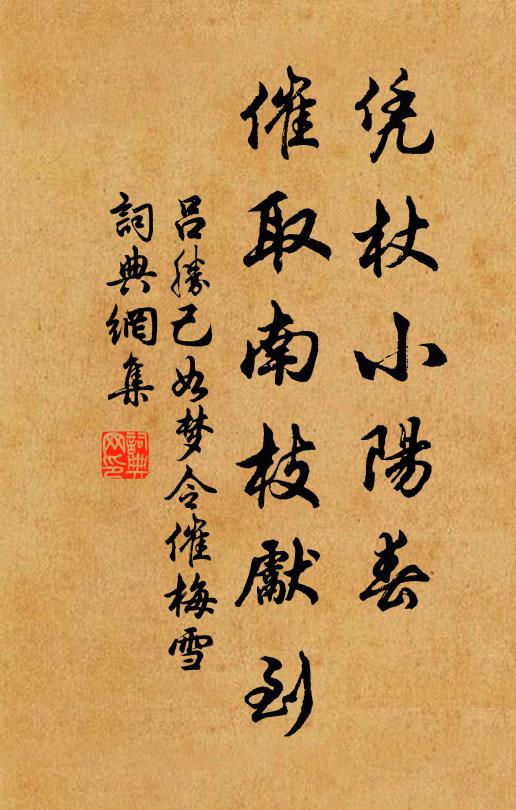 凭杖小陽春
催取南枝獻到
吕勝己如梦令催梅雪
詞典網集
詞典网印